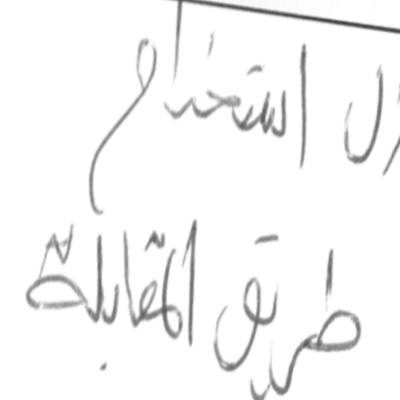 استخدام
طريق المقابلة